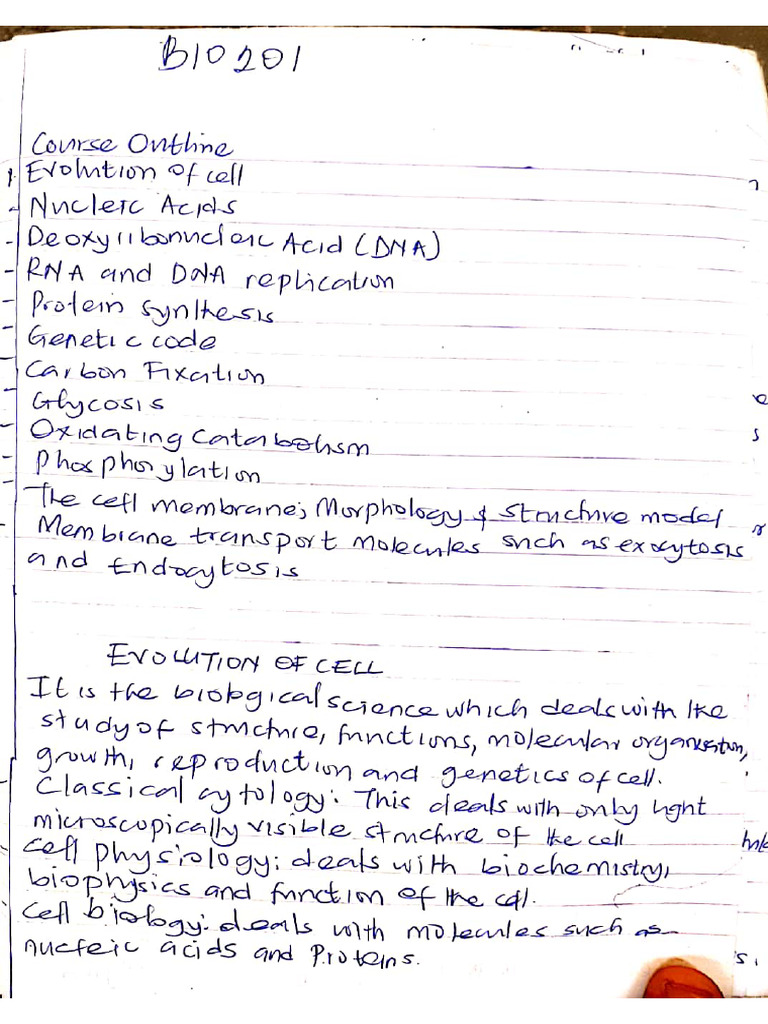 BIO 201
Course Outline
1. Evolution of cell
- Nucleic Acids
- Deoxyribonucleic Acid (DNA)
- RNA and DNA replication
- Protein synthesis
- Genetic code
- Carbon Fixation
- Glycosis
- Oxidating Catabolism
- Phosphorylation
- The cell membrane; Morphology & structure model
Membrane transport molecules such as exocytosis
and Endocytosis
EVOLUTION OF CELL
It is the biological science which deals with the
study of structure, functions, molecular organisation,
growth, reproduction and genetics of cell.
Classical cytology: This deals with only light
microscopically visible structure of the cell
cell physiology: deals with biochemistry,
biophysics and function of the cell.
Cell biology: deals with molecules such as
nucleic acids and Proteins.